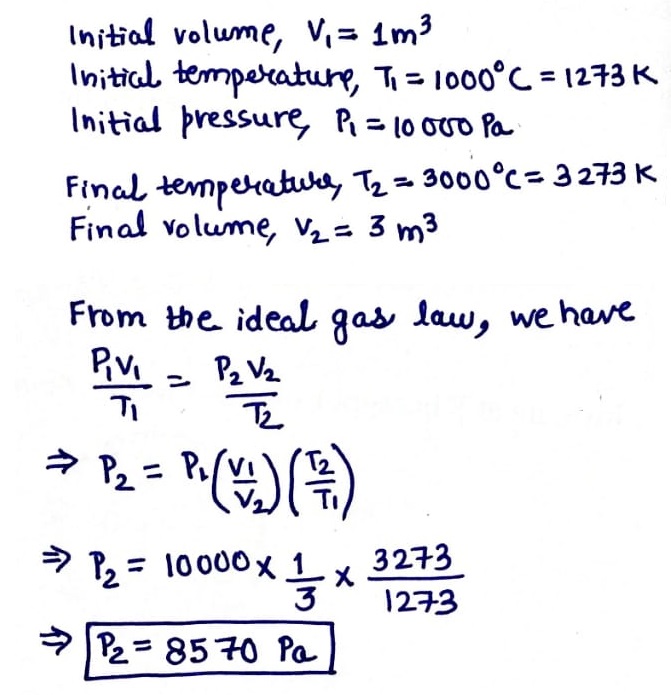 Initial volume, V₁ = 1m³
Initial temperature, T₁ = 1000°C = 1273 K
Initial pressure, P₁ = 10000 Pa
Final temperature, T₂ = 3000°C = 3273 K
Final volume, V₂ = 3 m³
From the ideal gas law, we have
P₁V₁/T₁ = P₂V₂/T₂
⇒ P₂ = P₁(V₁/V₂)(T₂/T₁)
⇒ P₂ = 10000 × 1/3 × 3273/1273
⇒ P₂ = 8570 Pa